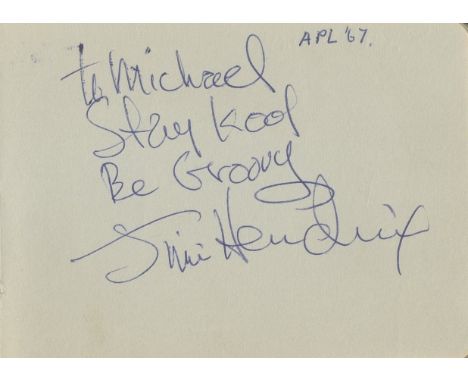 APL '67.
to Michael
Stay Kool
Be Groovy
Jimi Hendrix